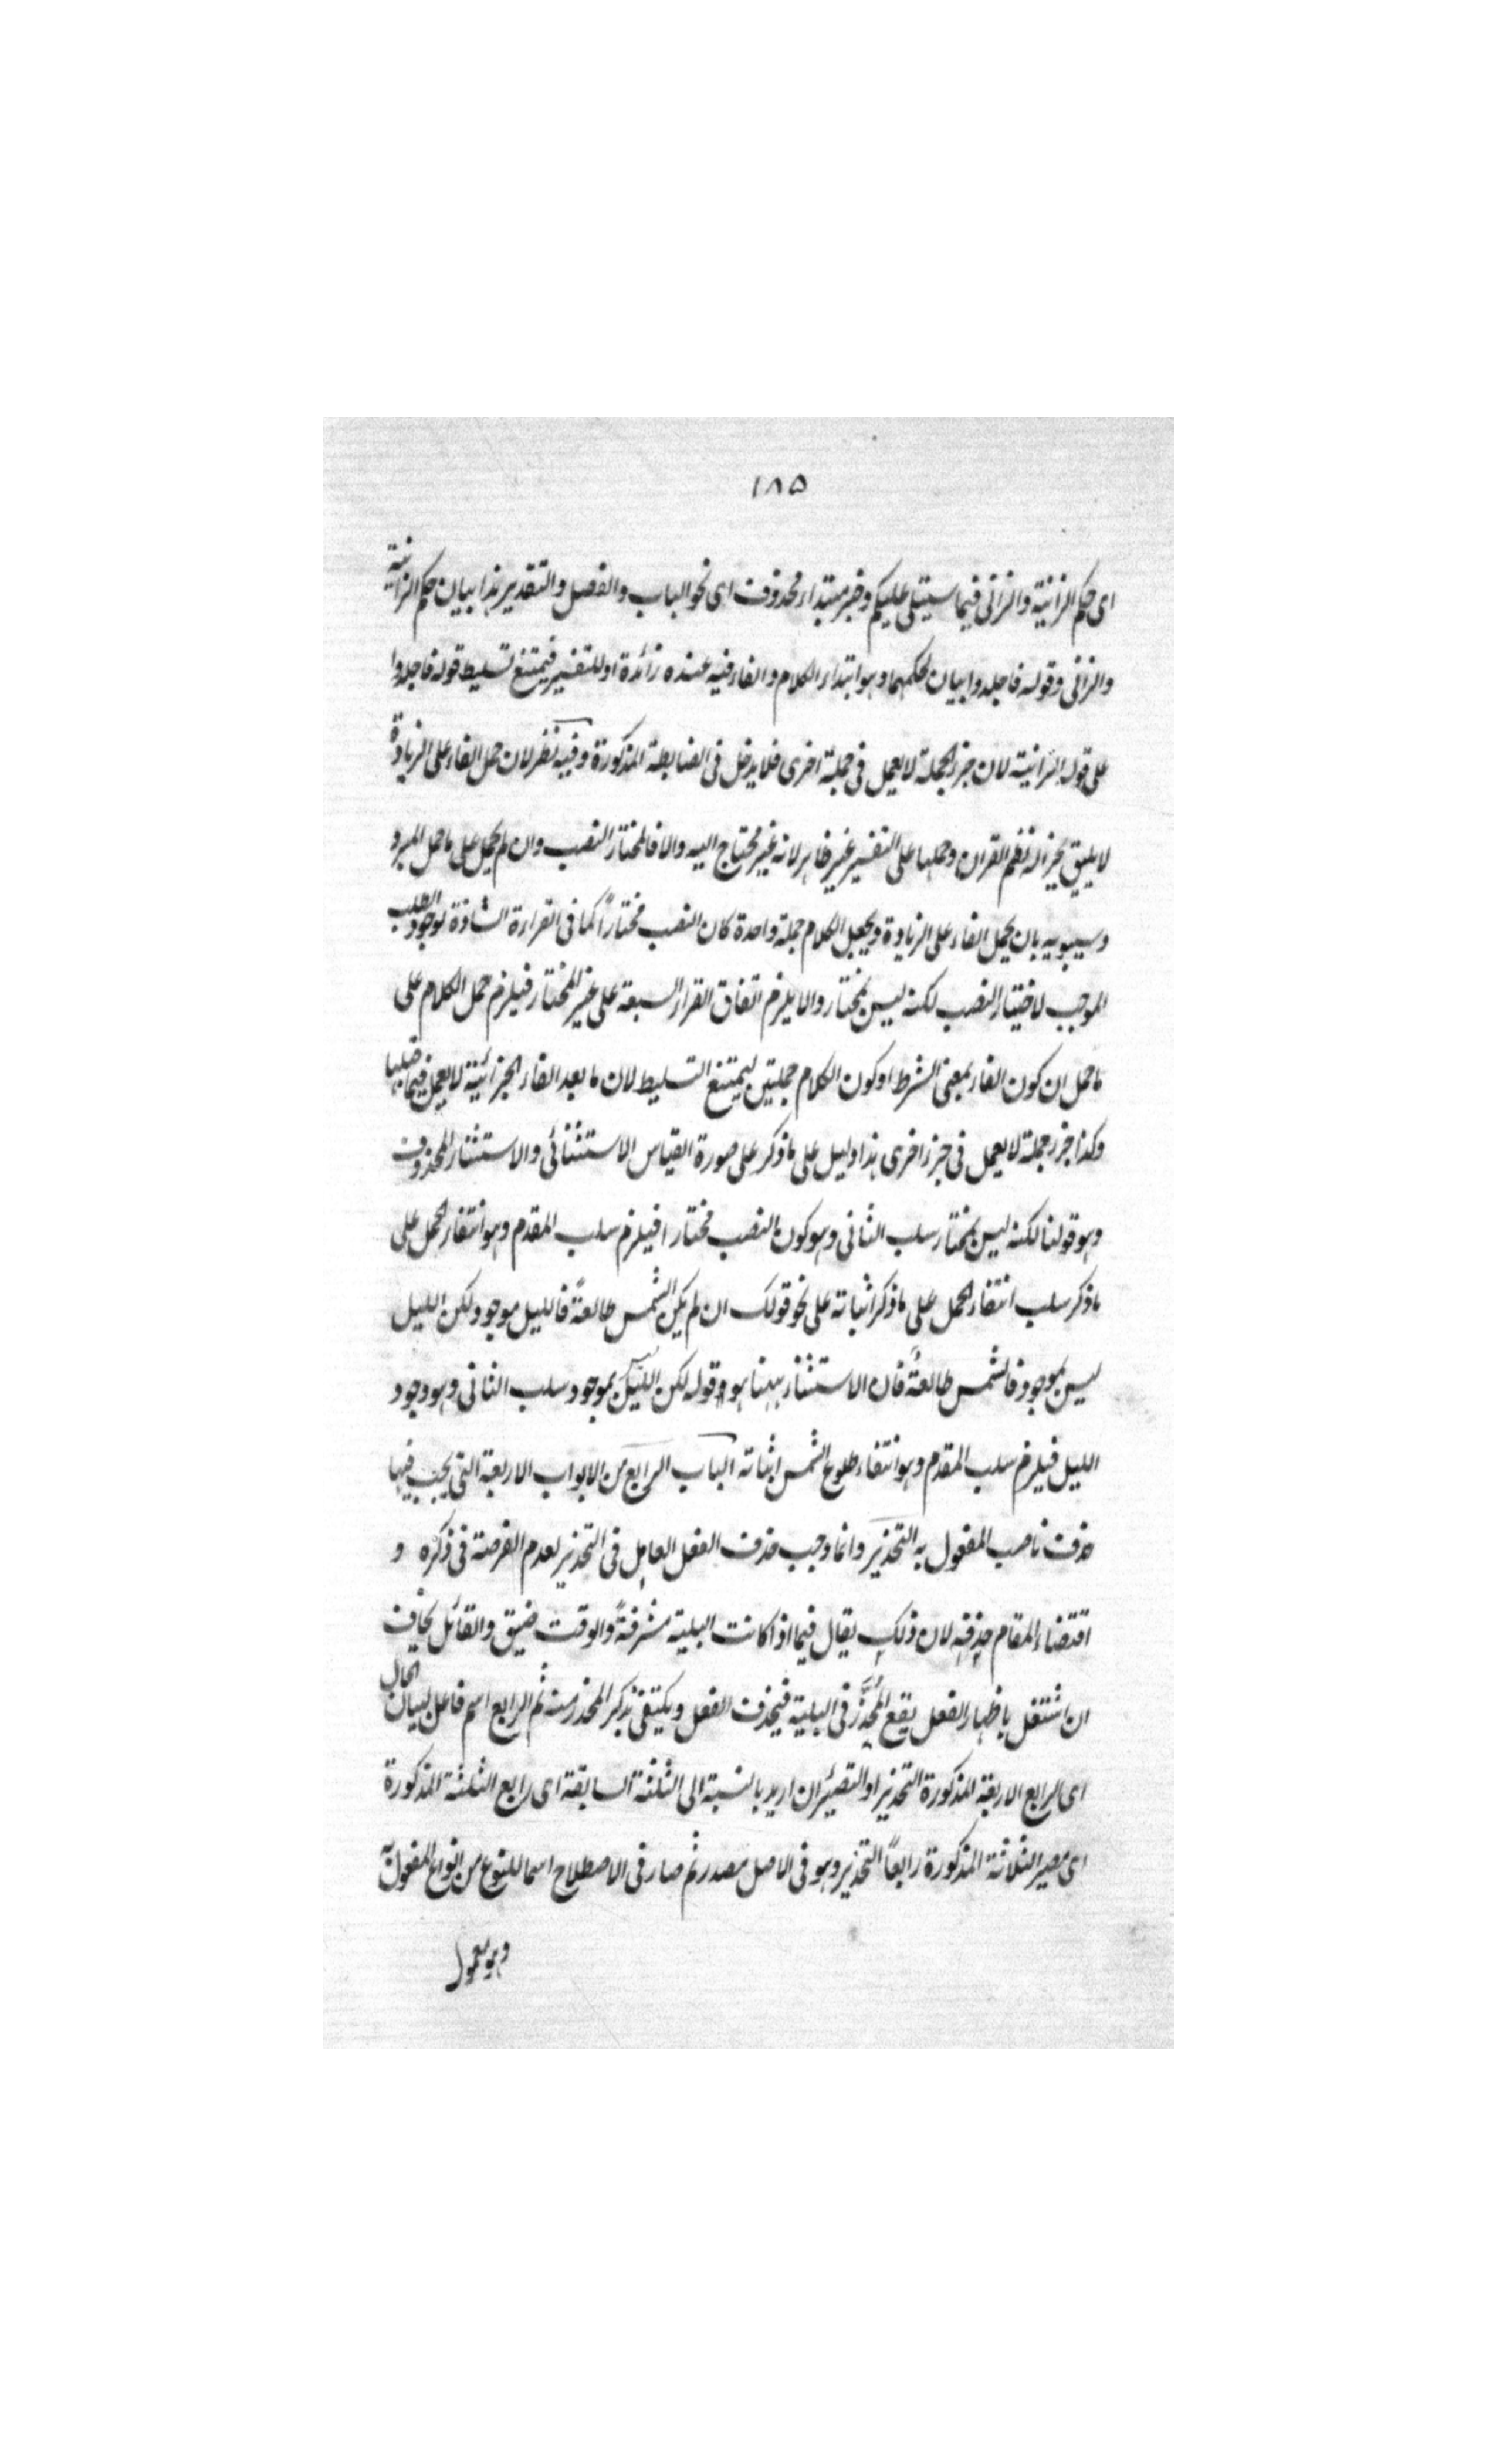 ١٨٥
اى حكم الزانية والزانى فيما سيتلى عليكم وخبر مبتداء محذوف اى نحو الباب والفصل والتقدير هذا بيان حكم الزانية
والزانى وقوله فاجلدوا بيان لحكمهما وهو ابتداء الكلام والفاء فيه عنده زائدة او للتفسير فيمتنع تسليط قوله فاجلدوا
على قوله الزانية لان جزء الجملة لا يعمل فى جملة اخرى فلا يدخل فى الضابطة المذكورة وفيه نظر لان حمل الفاء على الزيادة
لا يليق بجزالة نظم القران وحملها على التفسير غير ظاهر لانه غير محتاج اليه والا فالمختار النصب وان لم يحمل على ما حمل المبرد
وسيبويه بان يحمل الفاء على الزيادة ويجعل الكلام جملة واحدة كان النصب مختاراً كما فى القراءة الشاذة لوجود الطلب
الموجب لاختيار النصب لكنه ليس بمختار والا يلزم اتفاق القراء السبعة على غير المختار فيلزم حمل الكلام على
ما حمل ان كون الفاء بمعنى الشرط او كون الكلام جملتين ليمتنع التسليط لان ما بعد الفاء الجزائية لا يعمل فيما قبلها
وكذا جزء جملة لا يعمل فى جزء اخرى هذا دليل على ما ذكر على صورة القياس الاستثنائى والاستثناء المحذوف
وهو قولنا لكنه ليس بمختار سلب الثانى وهو كون النصب مختارا فيلزم سلب المقدم وهو انتفاء الحمل على
ما ذكر سلب انتفاء الحمل على ما ذكر اثباته على نحو قولك ان لم يكن الشمس طالعةً فالليل موجود لكن الليل
ليس بموجود فالشمس طالعةٌ فان الاستثناء ههنا هو قوله لكن الليل ليس بموجود سلب الثانى وهو وجود
الليل فيلزم سلب المقدم وهو انتفاء طلوع الشمس اثباته الباب الرابع من الابواب الاربعة التى يجب فيها
حذف ناصب المفعول به التحذير وانما وجب حذف الفعل العامل فى التحذير لعدم الفرصة فى ذكره و
اقتضاء المقام حذفه لان ذلك يقال فيما اذا كانت البلية مشرفةً والوقت ضيق والقائل يخاف
ان اشتغل باظهار الفعل يقع المحذَّر فى البلية فيحذف الفعل ويكتفى بذكر المحذر منه ثم الرابع اسم فاعل لبيان الحال
اى الرابع الاربعة المذكورة التحذير او التصيير ان اريد بالنسبة الى الثلثة السابقة اى رابع الثلثة المذكورة
اى مصير الثلاثة المذكورة رابعاً التحذير وهو فى الاصل مصدر ثم صار فى الاصطلاح اسما للنوع من انواع المفعول به
وهو معمول